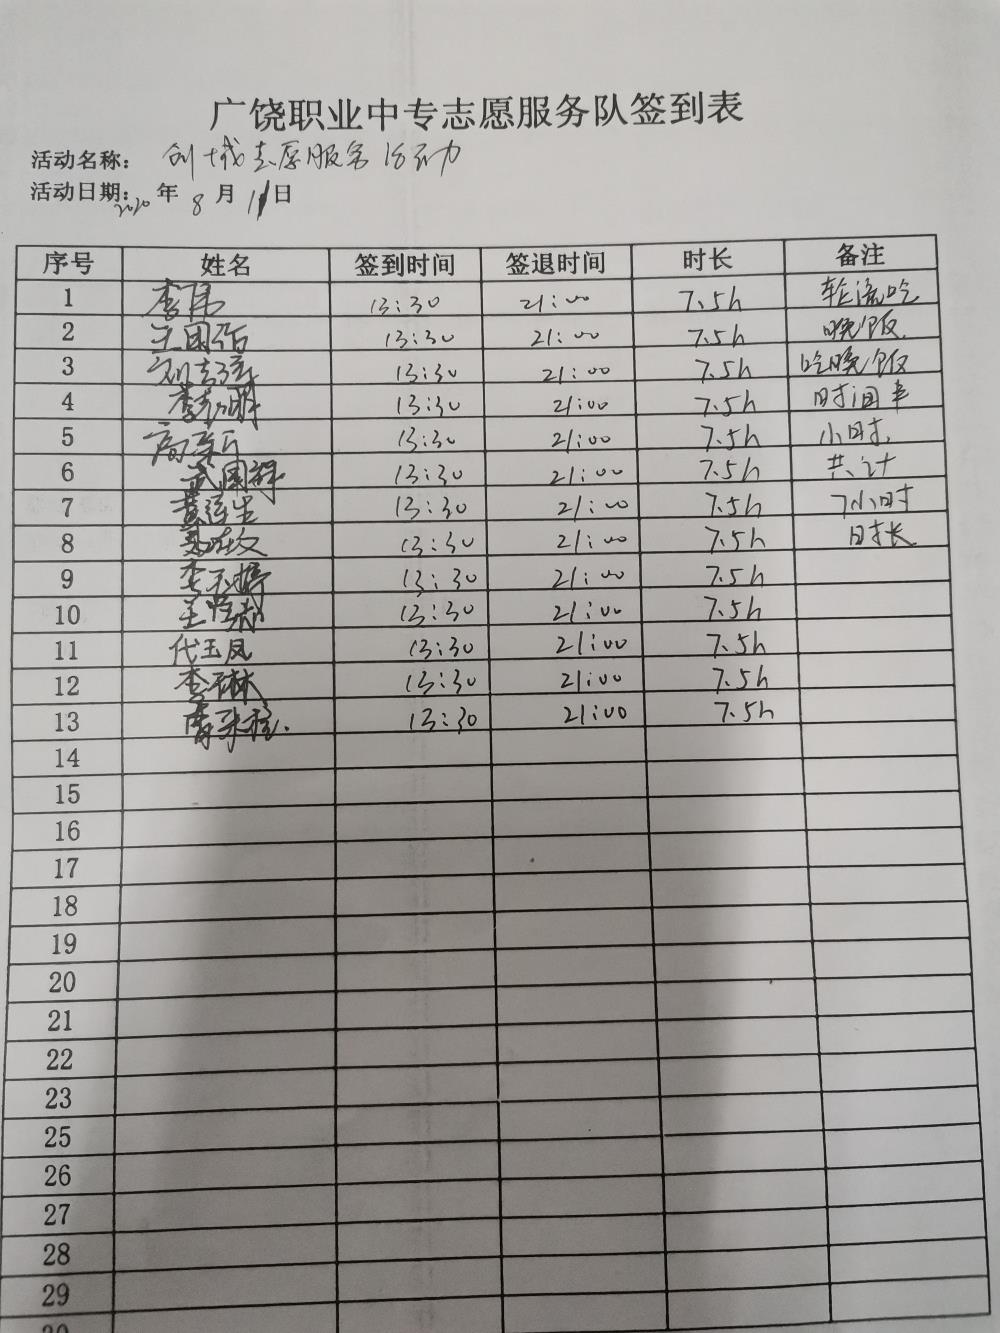 广饶职业中专志愿服务队签到表
活动名称： 创城志愿服务活动
活动日期：2020 年 8 月 11 日
序号 姓名 签到时间 签退时间 时长 备注
1 李伟 13:30 21:00 7.5h 轮流吃
2 王国 13:30 21:00 7.5h 晚饭
3 刘志 13:30 21:00 7.5h 吃晚饭
4 李 明 13:30 21:00 7.5h 时间半
5 高 13:30 21:00 7.5h 小时,
6 武国 13:30 21:00 7.5h 共计
7 莲生 13:30 21:00 7.5h 7小时
8 13:30 21:00 7.5h 时长
9 李玉 13:30 21:00 7.5h
10 王 13:30 21:00 7.5h
11 代玉凤 13:30 21:00 7.5h
12 李 琳 13:30 21:00 7.5h
13 13:30 21:00 7.5h
14
15
16
17
18
19
20
21
22
23
25
26
27
28
29
30